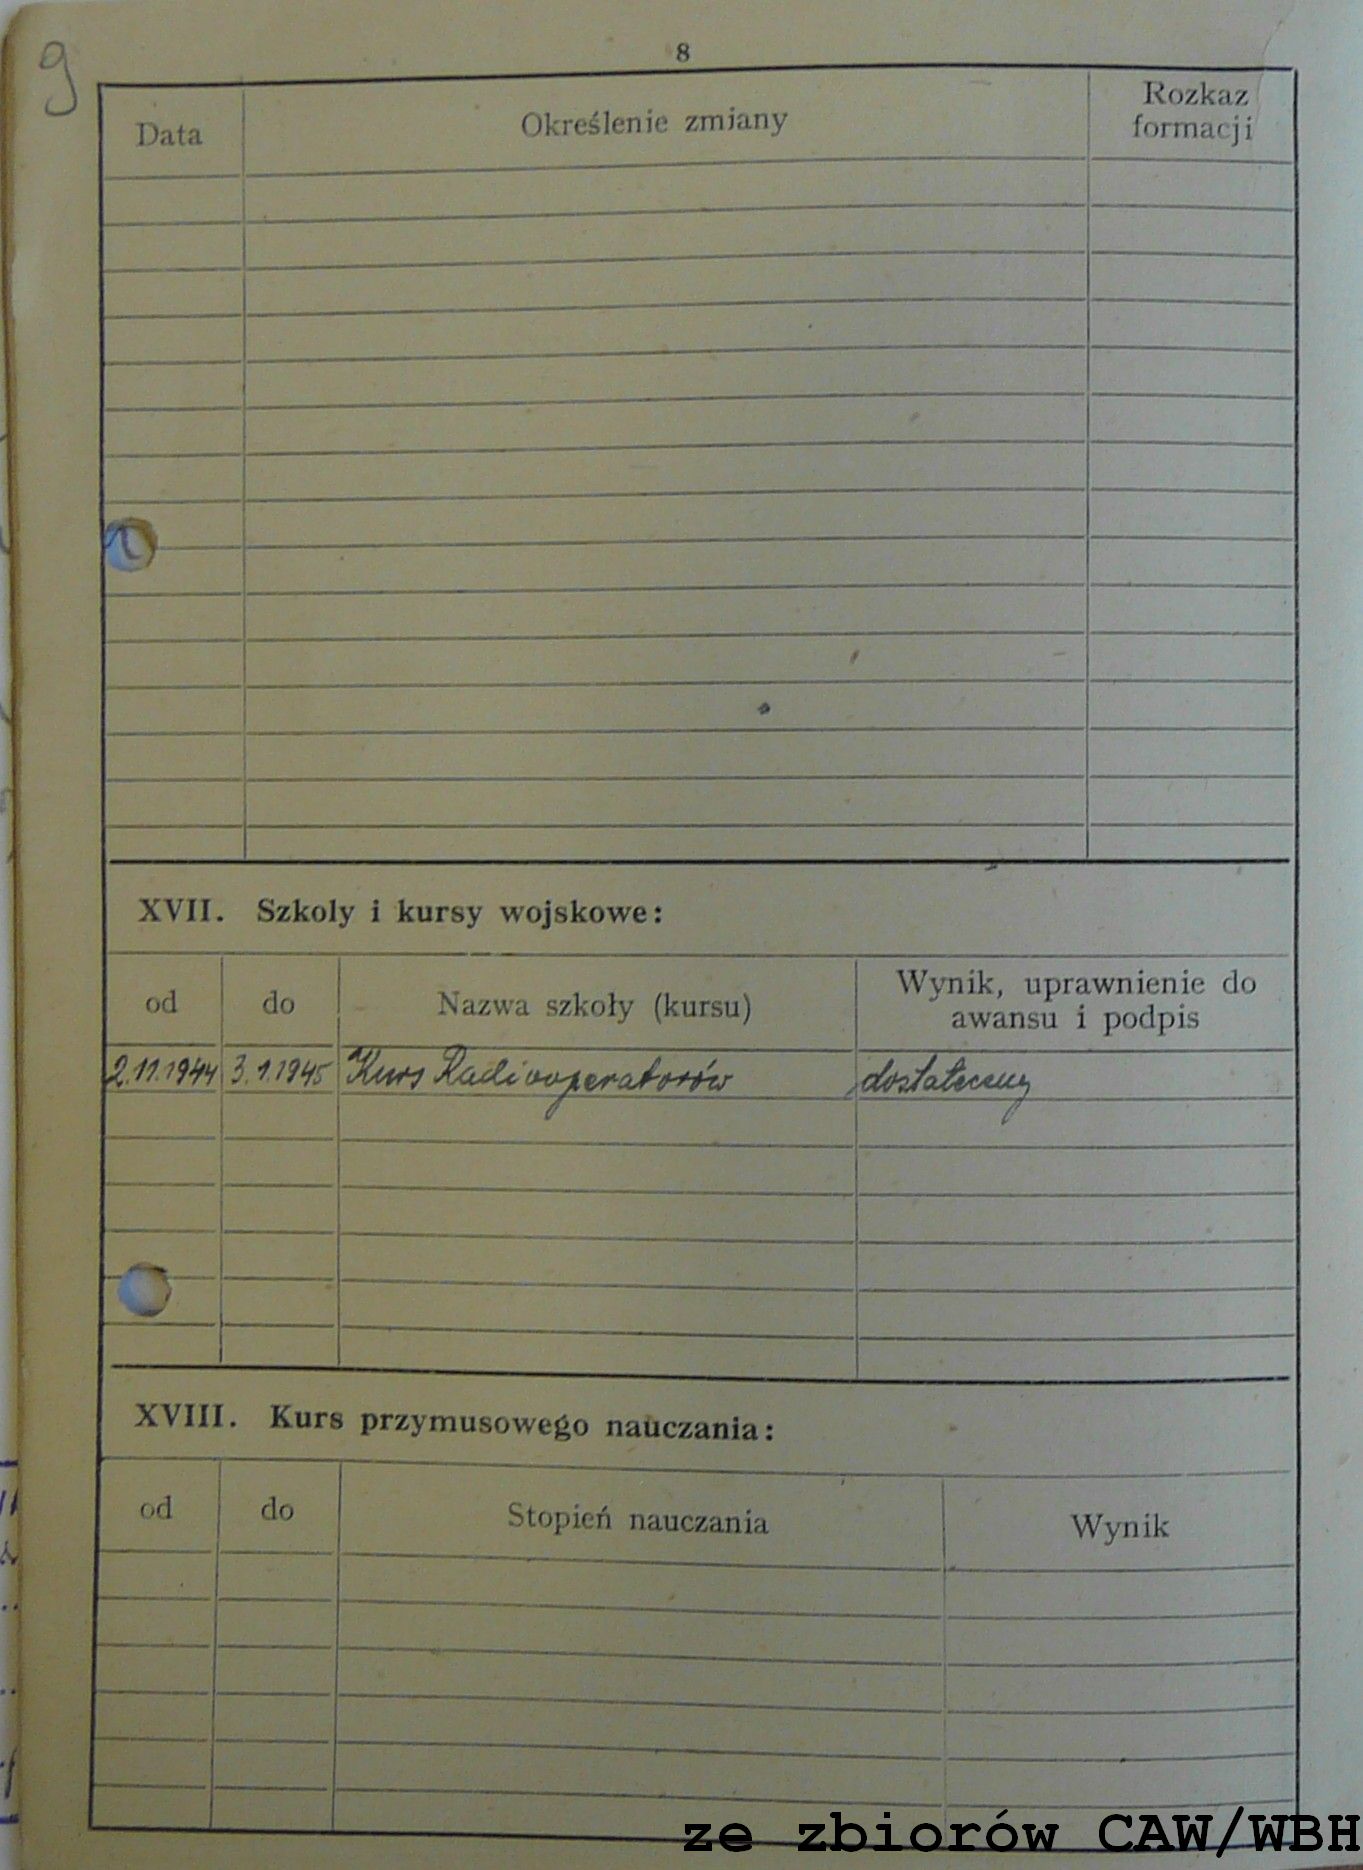 9
8
Data Określenie zmiany Rozkaz formacji
XVII. Szkoły i kursy wojskowe:
od do Nazwa szkoły (kursu) Wynik, uprawnienie do awansu i podpis
2.11.1944 3.1.1945 Kurs Radiooperatorów dostateczny
XVIII. Kurs przymusowego nauczania:
od do Stopień nauczania Wynik
ze zbiorów CAW/WBH